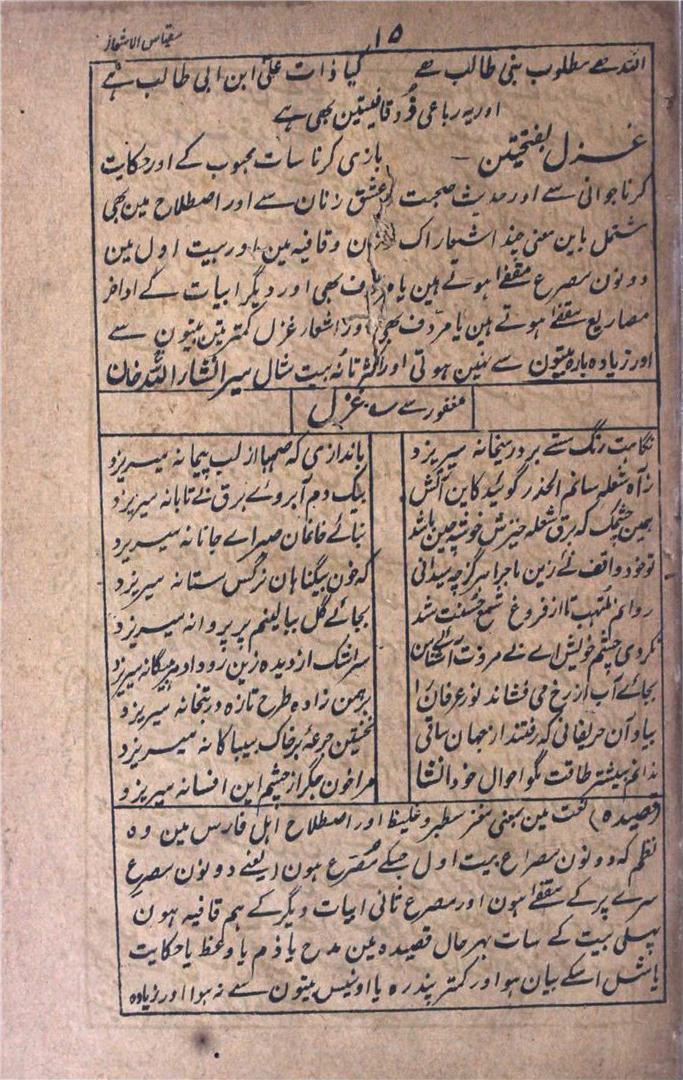 ۱۵
مقیاس الاشعار
اللہ ہے مطلوب بنی طالب ہے کیا ذات علی ابن ابی طالب ہے
اور یہ رباعی ذو قافیتین بھی ہے
غزل بفتحتین ـ بازی کرنا سات محبوب کے اور حکایت
کرنا جوانی سے اور حدیث صحبت و عشق زنان سے اور اصطلاح مین بھی
مشتمل باین معنی چند اشعار اک وقافیہ مین اور بیت اول مین
دونون مصرع مقفےٰ ہوتے ہین یا مردف بھی اور دیگر ابیات کے اواخر
مصاریع مقفےٰ ہوتے ہین یا مردف بھی اور اشعار غزل کمتر تین بیتون سے
اور زیادہ بارہ بیتون سے نہین ہوتی اور اکثر تا نہ بیت مثال میر انشاء اللہ خان
مغفور سے غزل
نگاہت رنگ مستے بر در میخانہ میریزد باندازی کہ صہبا از لب پیمانہ میریزد
ز آہ شعلہ سانم الحذر گوئید کاین آتش بیک دم آبروے برق بے تابانہ میریزد
بہمین چشمک کہ برق شعلہ خیزش خوشہ چین باشد بنائے خانمان صبر اے جانانہ میریزد
تو خود واقف نۂ زین ماجرا ہرگز چہ میدانی کہ خون بیگناہان نرگس مستانہ میریزد
روانم نکہت تا از فروغ شمع حسنت شد بجائے گل ببالینم پر پروانہ میریزد
نکردی چشم خویش اے بے مروت آشنا سرشک از دیدہ زین روداد ہر بیگانہ میریزد
بجائے آب از رخ می فشاند نور عرفان را برہمن زادہ طرح تازہ در بتخانہ میریزد
بیاد آن حریفانی کہ رفتند از جہان ساقی نخستین جرعہ بر خاک بیباکانہ میریزد
ندانم بیشتر طاقت مگو احوال خود انشا مرا خون جگر از چشم این افسانہ میریزد
(قصیدہ) لغت مین بمعنی مغز سطبر و غلیظ اور اصطلاح اہل فارس مین وہ
نظم کہ دونون مصراع بیت اول جسکے مصرع ہون (یعنے دونون مصرع
سرے پر کے مقفےٰ ہون اور مصرع ثانی ابیات دیگر کے ہم قافیہ ہون
پہلی بیت کے سات بہر حال قصیدہ مین مدح یا ذم یا وعظ یا حکایت
یا مثل اسکے بیان ہو اور کمتر پندرہ یا اونیس بیتون سے نہوا اور زیادہ